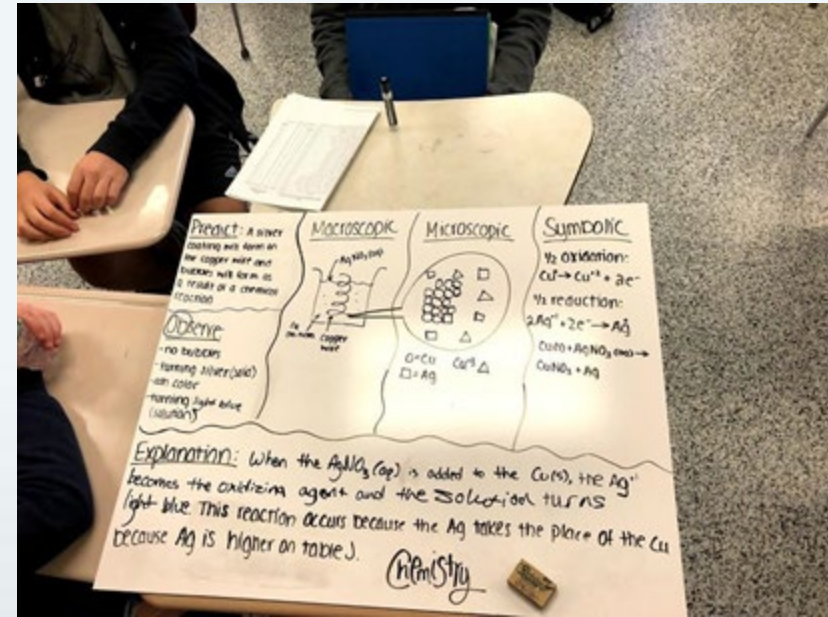 Predict: A silver
coating will form on
the copper wire and
bubbles will form as
a result of a chemical
reaction
Observe:
-no bubbles
-forming silver (solid)
color
-forming light blue
(solution)
Macroscopic
AgNO₃(aq)
Copper
wire
Microscopic
O=Cu
□=Ag
Cu⁺² △
Symbolic
½ oxidation:
Cu⁰→Cu⁺²+2e⁻
½ reduction:
2Ag⁺¹+2e⁻→Ag⁰
Cu(s)+AgNO₃(aq)→
CuNO₃+Ag
Explanation: When the AgNO₃(aq) is added to the Cu(s), the Ag⁺¹
becomes the oxidizing agent and the solution turns
light blue. This reaction occurs because the Ag takes the place of the Cu
because Ag is higher on table J.
Chemistry